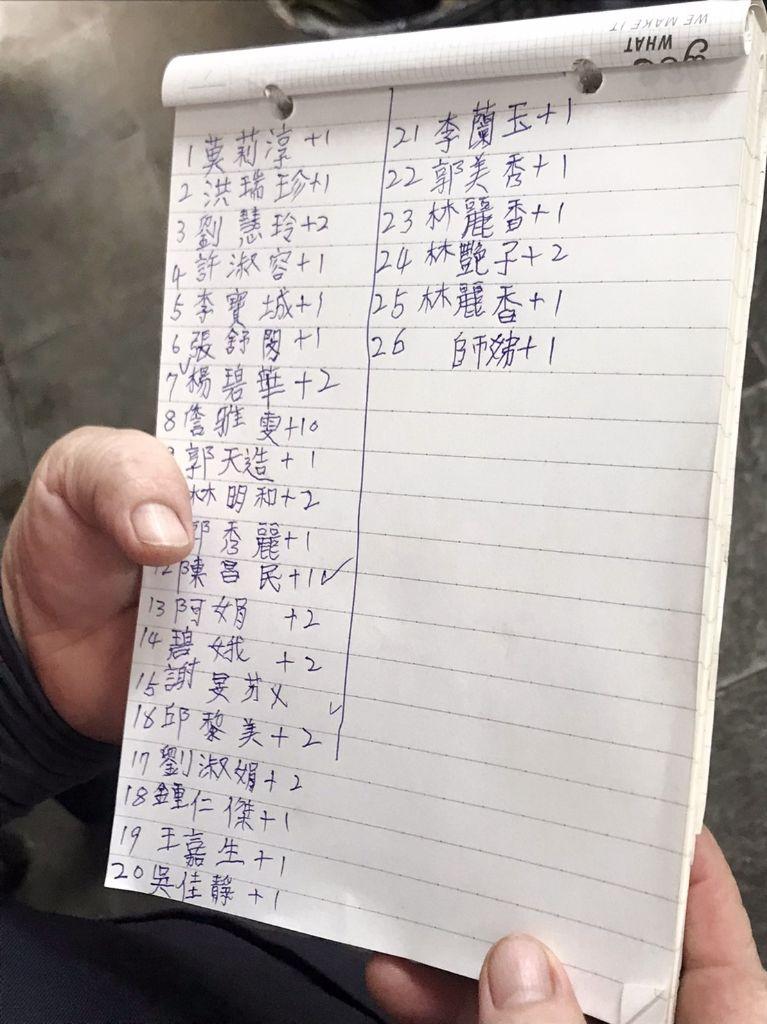 WE MAKE IT
WHAT
1 莫莉淳+1
2 洪瑞珍+1
3 劉慧玲+2
4 許淑容+1
5 李寶城+1
6 張舒閔+1
7 楊碧華+2
8 詹雅雯+10
郭天造+1
林明和+2
郭秀麗+1
12 陳昌民+11✓
13 阿娟 +2
14 碧娥 +2
15 謝旻芬X
16 邱黎美+2
17 劉淑娟+2
18 鍾仁傑+1
19 王嘉生+1
20 吳佳靜+1
21 李蘭玉+1
22 郭美秀+1
23 林麗香+1
24 林艷子+2
25 林麗香+1
26 師娣+1